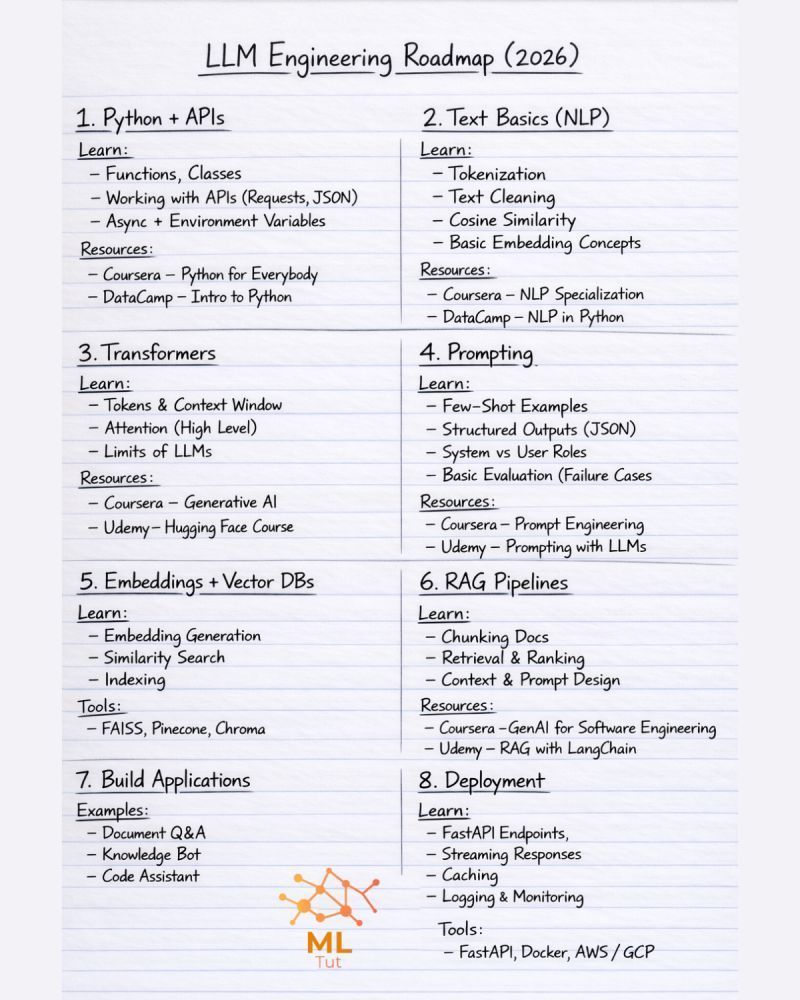 LLM Engineering Roadmap (2026)
1. Python + APIs
Learn:
– Functions, Classes
– Working with APIs (Requests, JSON)
– Async + Environment Variables
Resources:
– Coursera – Python for Everybody
– DataCamp – Intro to Python
2. Text Basics (NLP)
Learn:
– Tokenization
– Text Cleaning
– Cosine Similarity
– Basic Embedding Concepts
Resources:
– Coursera – NLP Specialization
– DataCamp – NLP in Python
3. Transformers
Learn:
– Tokens & Context Window
– Attention (High Level)
– Limits of LLMs
Resources:
– Coursera – Generative AI
– Udemy – Hugging Face Course
4. Prompting
Learn:
– Few-Shot Examples
– Structured Outputs (JSON)
– System vs User Roles
– Basic Evaluation (Failure Cases
Resources:
– Coursera – Prompt Engineering
– Udemy – Prompting with LLMs
5. Embeddings + Vector DBs
Learn:
– Embedding Generation
– Similarity Search
– Indexing
Tools:
– FAISS, Pinecone, Chroma
6. RAG Pipelines
Learn:
– Chunking Docs
– Retrieval & Ranking
– Context & Prompt Design
Resources:
– Coursera – GenAI for Software Engineering
– Udemy – RAG with LangChain
7. Build Applications
Examples:
– Document Q&A
– Knowledge Bot
– Code Assistant
8. Deployment
Learn:
– FastAPI Endpoints,
– Streaming Responses
– Caching
– Logging & Monitoring
Tools:
– FastAPI, Docker, AWS / GCP
ML
Tut